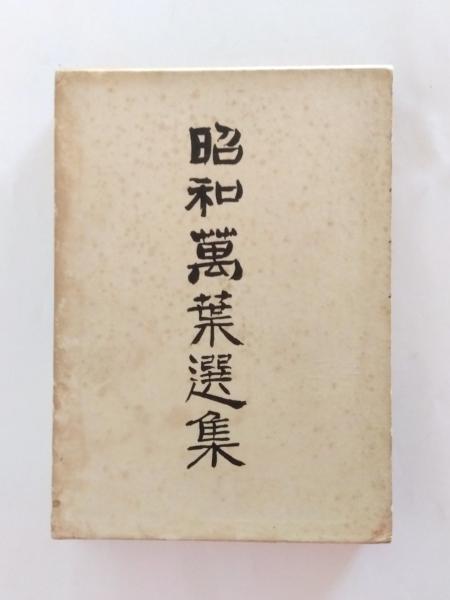 昭和萬葉選集